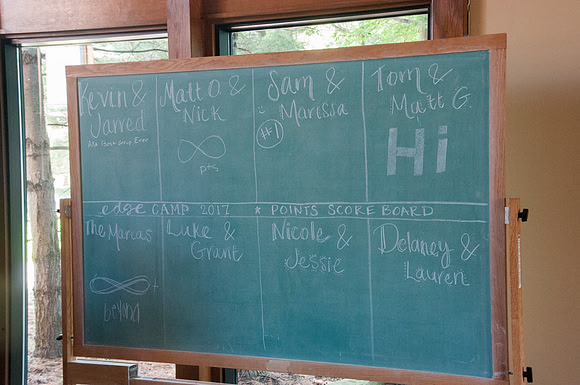 Kevin &
Jarred
AKA Best Group Ever
Matt O. &
Nick
∞
pts
Sam &
Marissa
#1
Tom &
Matt G.
Hi
edge CAMP 2017 * POINTS SCORE BOARD
The Marcas
∞ +
beyond
Luke &
Grant
Nicole &
Jessie
Delaney &
Lauren